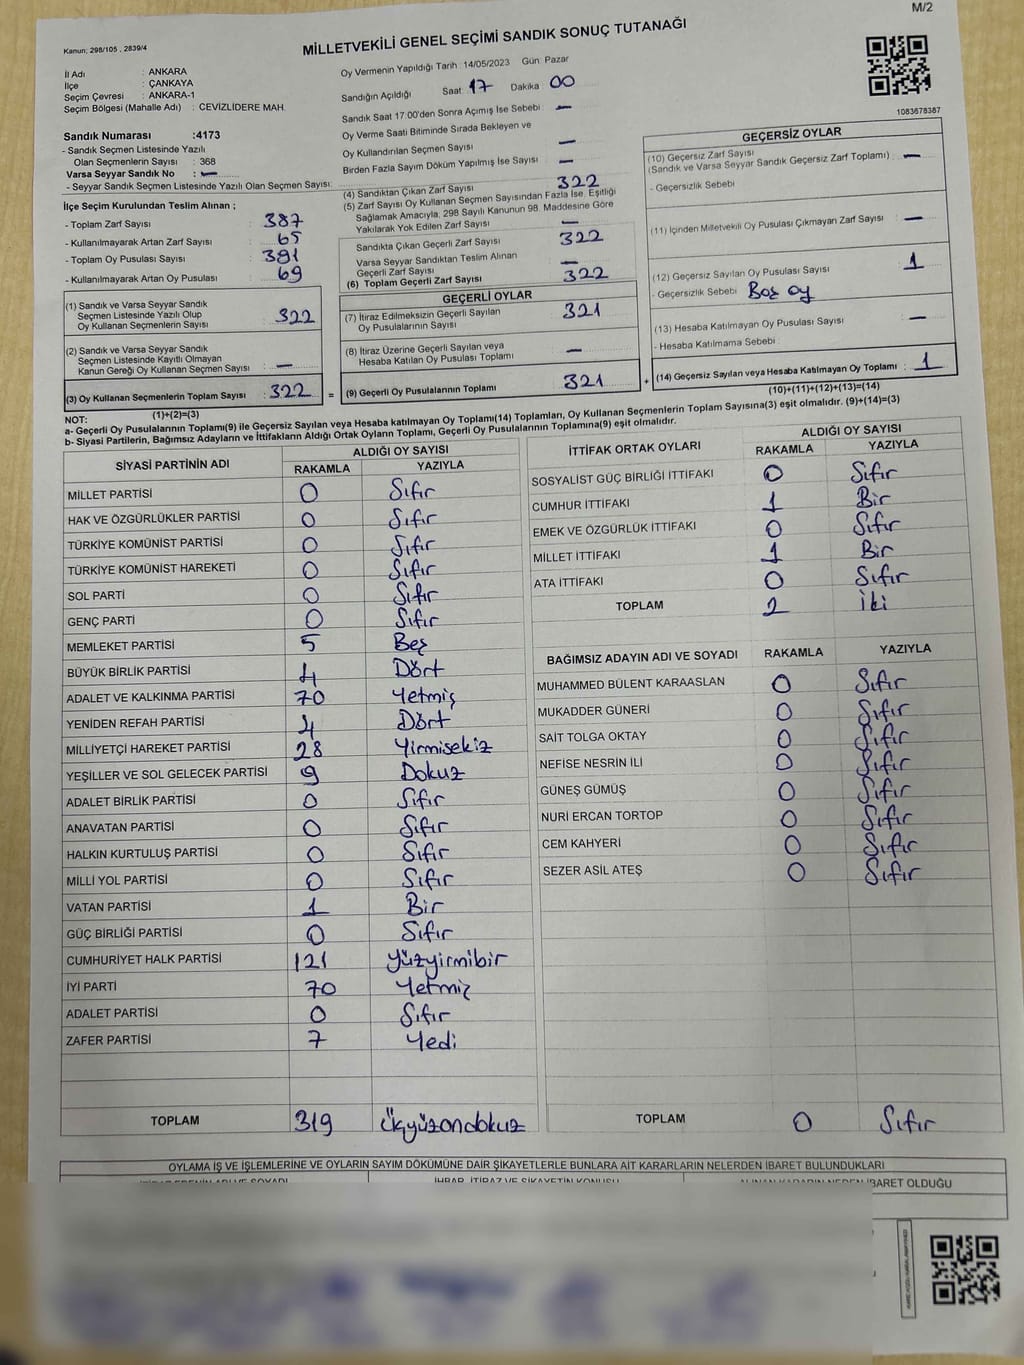 M/2
Kanun; 298/105 , 2839/4
MİLLETVEKİLİ GENEL SEÇİMİ SANDIK SONUÇ TUTANAĞI
1083678387
İl Adı : ANKARA
İlçe : ÇANKAYA
Seçim Çevresi : ANKARA-1
Seçim Bölgesi (Mahalle Adı) : CEVİZLİDERE MAH.
Sandık Numarası :4173
- Sandık Seçmen Listesinde Yazılı
Olan Seçmenlerin Sayısı : 368
Varsa Seyyar Sandık No : —
- Seyyar Sandık Seçmen Listesinde Yazılı Olan Seçmen Sayısı:
İlçe Seçim Kurulundan Teslim Alınan ;
- Toplam Zarf Sayısı : 387
- Kullanılmayarak Artan Zarf Sayısı : 65
- Toplam Oy Pusulası Sayısı : 391
- Kullanılmayarak Artan Oy Pusulası : 69
(1) Sandık ve Varsa Seyyar Sandık
Seçmen Listesinde Yazılı Olup
Oy Kullanan Seçmenlerin Sayısı : 322
(2) Sandık ve Varsa Seyyar Sandık
Seçmen Listesinde Kayıtlı Olmayan
Kanun Gereği Oy Kullanan Seçmen Sayısı : —
(3) Oy Kullanan Seçmenlerin Toplam Sayısı : 322 =
(1)+(2)=(3)
Oy Vermenin Yapıldığı Tarih : 14/05/2023 Gün: Pazar
Sandığın Açıldığı Saat : 17 Dakika : 00
Sandık Saat 17:00'den Sonra Açımış İse Sebebi : —
Oy Verme Saati Bitiminde Sırada Bekleyen ve
Oy Kullandırılan Seçmen Sayısı —
Birden Fazla Sayım Döküm Yapılmış İse Sayısı —
(4) Sandıktan Çıkan Zarf Sayısı 322
(5) Zarf Sayısı Oy Kullanan Seçmen Sayısından Fazla İse, Eşitliği
Sağlamak Amacıyla, 298 Sayılı Kanunun 98. Maddesine Göre
Yakılarak Yok Edilen Zarf Sayısı —
Sandıkta Çıkan Geçerli Zarf Sayısı 322
Varsa Seyyar Sandıktan Teslim Alınan
Geçerli Zarf Sayısı —
(6) Toplam Geçerli Zarf Sayısı 322
GEÇERLİ OYLAR
(7) İtiraz Edilmeksizin Geçerli Sayılan
Oy Pusulalarının Sayısı 321
(8) İtiraz Üzerine Geçerli Sayılan veya
Hesaba Katılan Oy Pusulası Toplamı —
(9) Geçerli Oy Pusulalarının Toplamı 321 +
GEÇERSİZ OYLAR
(10) Geçersiz Zarf Sayısı
(Sandık ve Varsa Seyyar Sandık Geçersiz Zarf Toplamı) : —
- Geçersizlik Sebebi
(11) İçinden Milletvekili Oy Pusulası Çıkmayan Zarf Sayısı : —
(12) Geçersiz Sayılan Oy Pusulası Sayısı : 1
- Geçersizlik Sebebi Boş oy
(13) Hesaba Katılmayan Oy Pusulası Sayısı : —
- Hesaba Katılmama Sebebi :
(14) Geçersiz Sayılan veya Hesaba Katılmayan Oy Toplamı : 1
(10)+(11)+(12)+(13)=(14)
NOT:
a- Geçerli Oy Pusulalarının Toplamı(9) ile Geçersiz Sayılan veya Hesaba katılmayan Oy Toplamı(14) Toplamları, Oy Kullanan Seçmenlerin Toplam Sayısına(3) eşit olmalıdır. (9)+(14)=(3)
b- Siyasi Partilerin, Bağımsız Adayların ve İttifakların Aldığı Ortak Oyların Toplamı, Geçerli Oy Pusulalarının Toplamına(9) eşit olmalıdır.
SİYASİ PARTİNİN ADI ALDIĞI OY SAYISI
RAKAMLA YAZIYLA
MİLLET PARTİSİ 0 Sıfır
HAK VE ÖZGÜRLÜKLER PARTİSİ 0 Sıfır
TÜRKİYE KOMÜNİST PARTİSİ 0 Sıfır
TÜRKİYE KOMÜNİST HAREKETİ 0 Sıfır
SOL PARTİ 0 Sıfır
GENÇ PARTİ 0 Sıfır
MEMLEKET PARTİSİ 5 Beş
BÜYÜK BİRLİK PARTİSİ 4 Dört
ADALET VE KALKINMA PARTİSİ 70 Yetmiş
YENİDEN REFAH PARTİSİ 4 Dört
MİLLİYETÇİ HAREKET PARTİSİ 28 Yirmisekiz
YEŞİLLER VE SOL GELECEK PARTİSİ 9 Dokuz
ADALET BİRLİK PARTİSİ 0 Sıfır
ANAVATAN PARTİSİ 0 Sıfır
HALKIN KURTULUŞ PARTİSİ 0 Sıfır
MİLLİ YOL PARTİSİ 0 Sıfır
VATAN PARTİSİ 1 Bir
GÜÇ BİRLİĞİ PARTİSİ 0 Sıfır
CUMHURİYET HALK PARTİSİ 121 Yüzyirmibir
İYİ PARTİ 70 Yetmiş
ADALET PARTİSİ 0 Sıfır
ZAFER PARTİSİ 7 Yedi
TOPLAM 319 Üçyüzondokuz
İTTİFAK ORTAK OYLARI ALDIĞI OY SAYISI
RAKAMLA YAZIYLA
SOSYALİST GÜÇ BİRLİĞİ İTTİFAKI 0 Sıfır
CUMHUR İTTİFAKI 1 Bir
EMEK VE ÖZGÜRLÜK İTTİFAKI 0 Sıfır
MİLLET İTTİFAKI 1 Bir
ATA İTTİFAKI 0 Sıfır
TOPLAM 2 İki
BAĞIMSIZ ADAYIN ADI VE SOYADI RAKAMLA YAZIYLA
MUHAMMED BÜLENT KARAASLAN 0 Sıfır
MUKADDER GÜNERİ 0 Sıfır
SAİT TOLGA OKTAY 0 Sıfır
NEFİSE NESRİN İLİ 0 Sıfır
GÜNEŞ GÜMÜŞ 0 Sıfır
NURİ ERCAN TORTOP 0 Sıfır
CEM KAHYERİ 0 Sıfır
SEZER ASİL ATEŞ 0 Sıfır
TOPLAM 0 Sıfır
OYLAMA İŞ VE İŞLEMLERİNE VE OYLARIN SAYIM DÖKÜMÜNE DAİR ŞİKAYETLERLE BUNLARA AİT KARARLARIN NELERDEN İBARET BULUNDUKLARI
İHBAR, İTİRAZ VE ŞİKAYETİN KONUSU
İBARET OLDUĞU